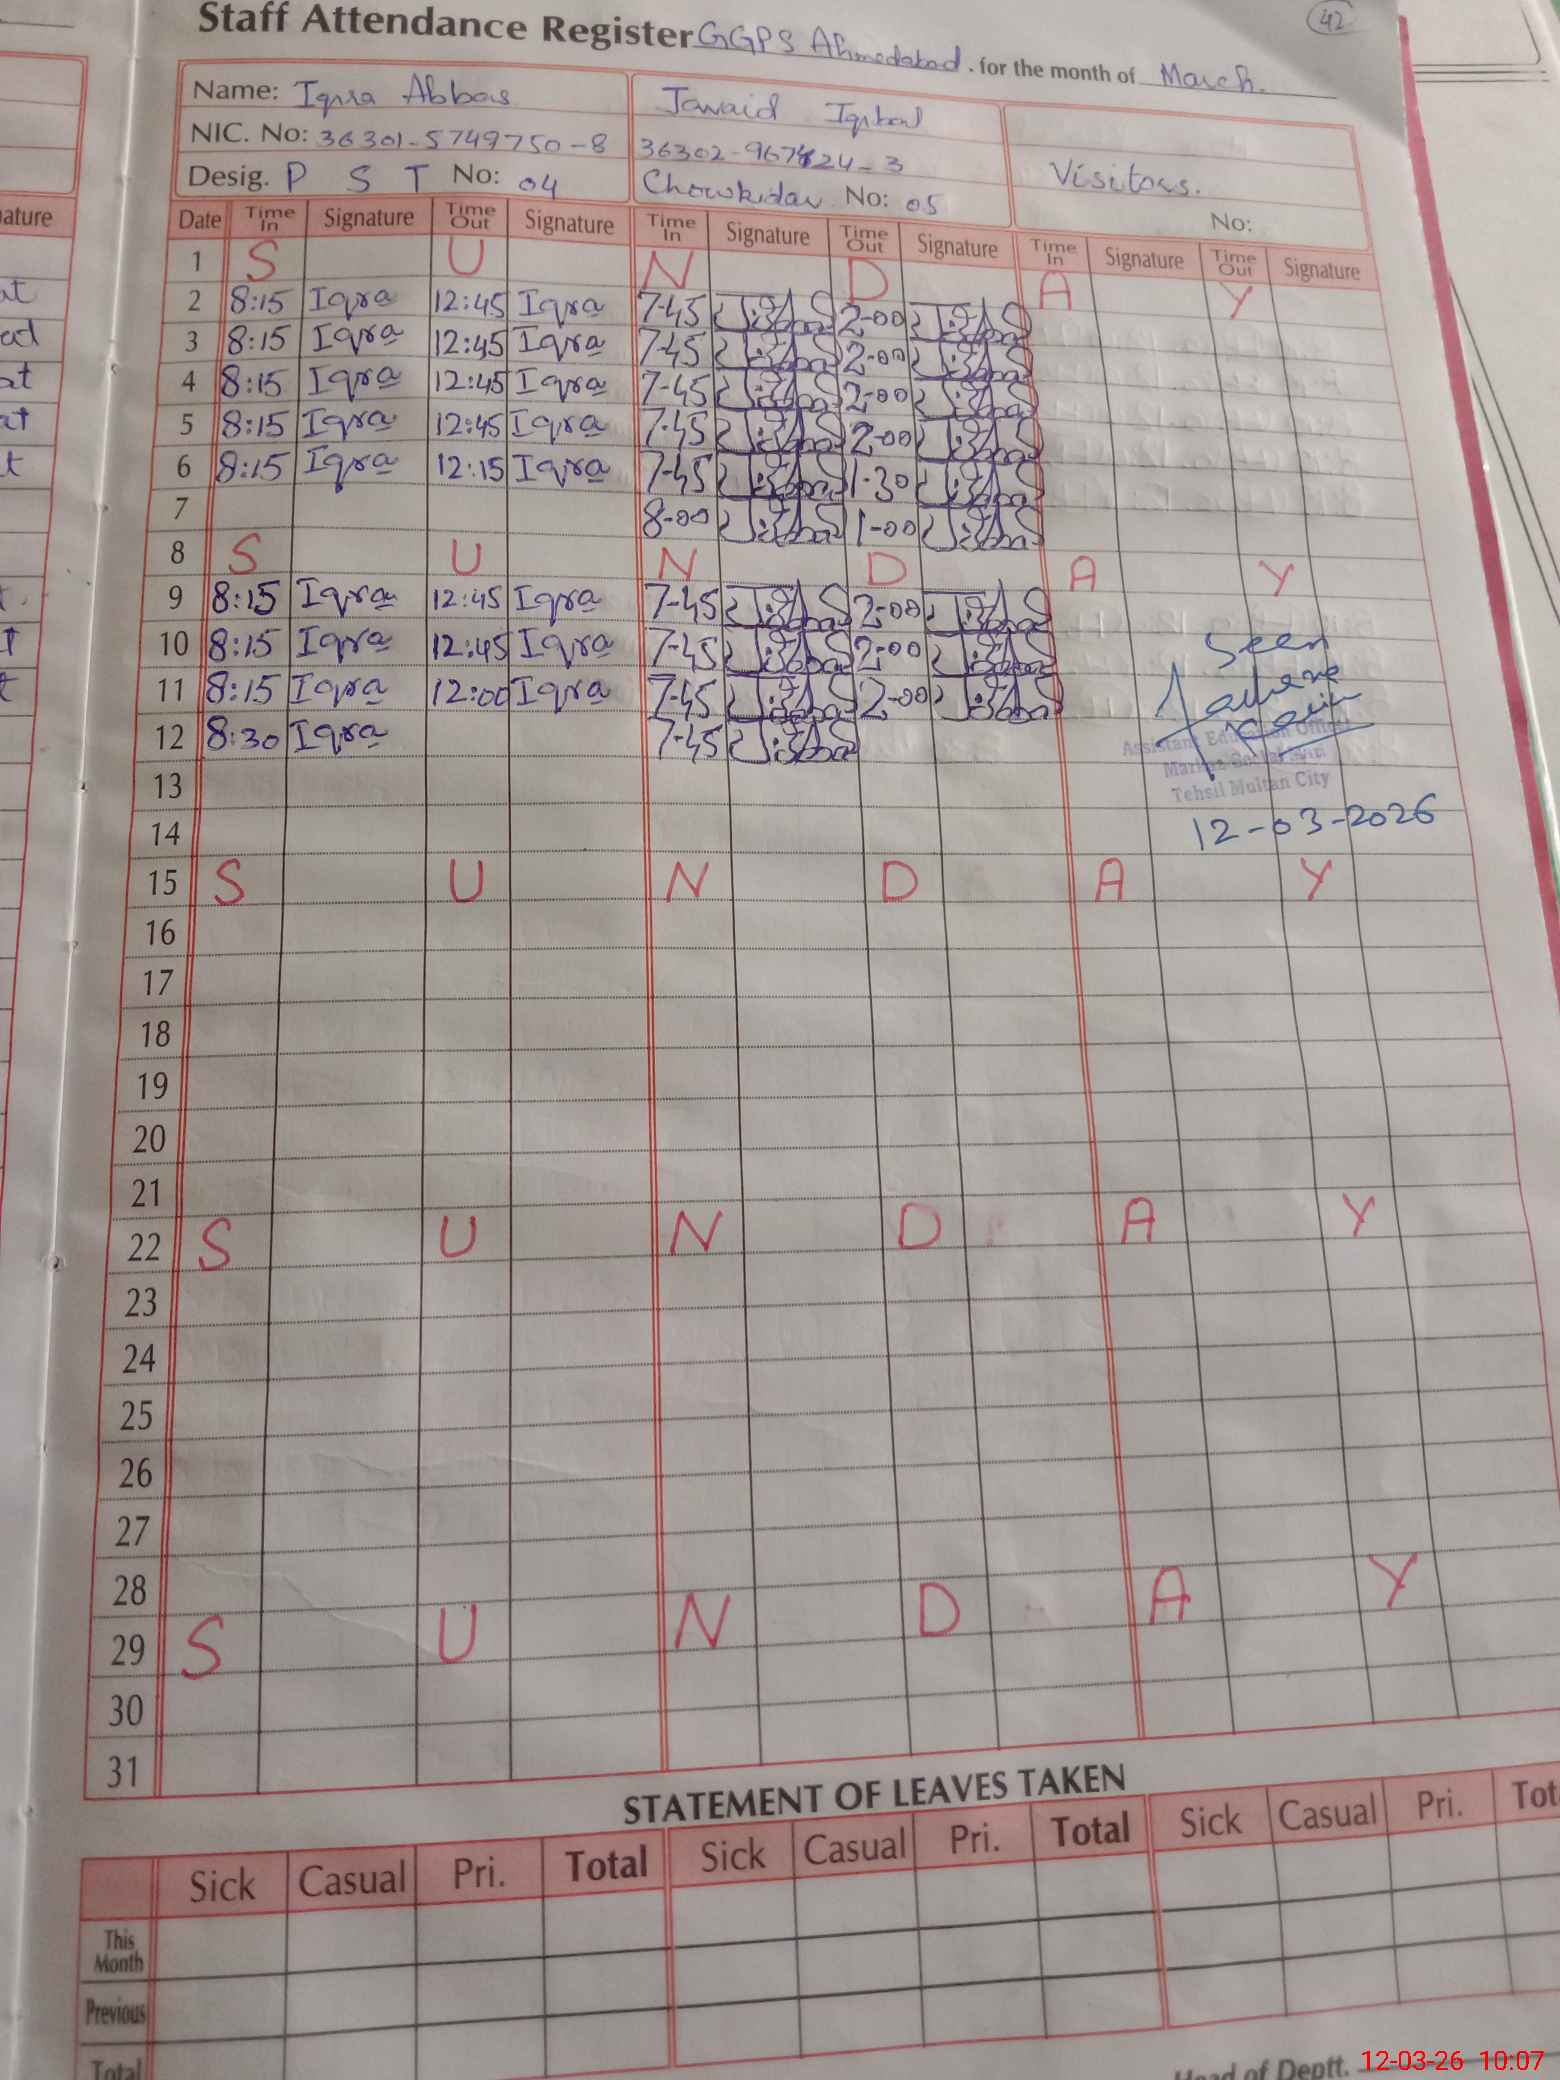 Staff Attendance Register GGPS Ahmedabad . for the month of March.
42
Name: Iqra Abbas Jawaid Iqbal
NIC. No: 36301-5749750-8 36302-967824-3 Visitors.
Desig. P S T No: 04 Chowkidar No: 05 No:
ature Date Time In Signature Time Out Signature Time In Signature Time Out Signature Time In Signature Time Out Signature
1 S U N D A Y
at 2 8:15 Iqra 12:45 Iqra 7-45 2-00
ad 3 8:15 Iqra 12:45 Iqra 7-45 2-00
at 4 8:15 Iqra 12:45 Iqra 7-45 2-00
at 5 8:15 Iqra 12:45 Iqra 7-45 2-00
t 6 8:15 Iqra 12:15 Iqra 7-45 1-30
7 8-00 1-00
8 S U N D A Y
9 8:15 Iqra 12:45 Iqra 7-45 2-00
10 8:15 Iqra 12:45 Iqra 7-45 2-00 Seen
11 8:15 Iqra 12:00 Iqra 7-45 2-00
12 8:30 Iqra 7-45
Assistant Education Officer
Tehsil Multan City
13
14 12-03-2026
15 S U N D A Y
16
17
18
19
20
21
22 S U N D A Y
23
24
25
26
27
28
29 S U N D A Y
30
31
STATEMENT OF LEAVES TAKEN
Sick Casual Pri. Total Sick Casual Pri. Total Sick Casual Pri. Tot
This Month
Previous
Total
Head of Deptt.
12-03-26 10:07